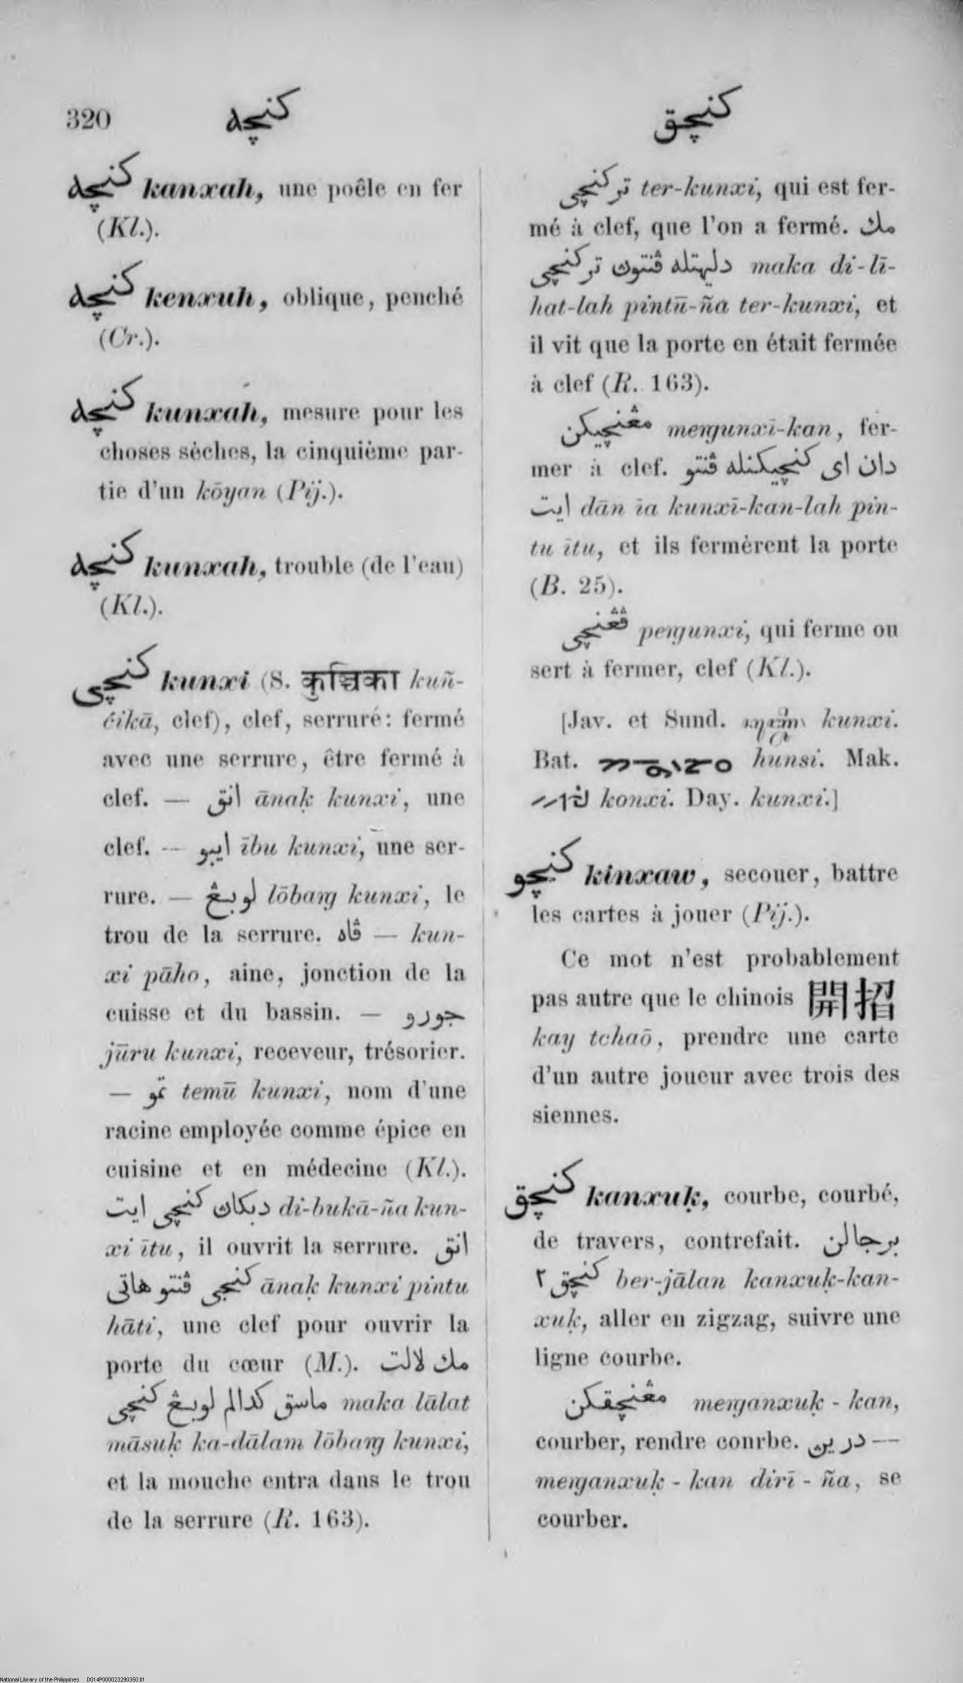 320
كنچه
كنچق
كنچه kanxah, une poêle en fer
(Kl.).
كنچه kenxuh, oblique, penché
(Cr.).
كنچه kunxah, mesure pour les
choses sèches, la cinquième par-
tie d'un kōyan (Pij.).
كنچه kunxah, trouble (de l'eau)
(Kl.).
كنچى kunxi (S. कुञ्चिका kuñ-
čikā, clef), clef, serrure: fermé
avec une serrure, être fermé à
clef. — انق ānaḳ kunxi, une
clef. — ايبو ību kunxi, une ser-
rure. — لوبڠ lōbaŋg kunxi, le
trou de la serrure. ڤاه — kun-
xi pāho, aine, jonction de la
cuisse et du bassin. — جورو
jūru kunxi, receveur, trésorier.
— تمو temū kunxi, nom d'une
racine employée comme épice en
cuisine et en médecine (Kl.).
دبكاڽ كنچى ايت di-bukā-ña kun-
xi ītu, il ouvrit la serrure. انق
كنچى ڤنتو هاتى ānaḳ kunxi pintu
hāti, une clef pour ouvrir la
porte du cœur (M.). مك لالت
ماسق كدالم لوبڠ كنچى maka lālat
māsuḳ ka-dālam lōbaŋg kunxi,
et la mouche entra dans le trou
de la serrure (R. 163).
تركنچى ter-kunxi, qui est fer-
mé à clef, que l'on a fermé. مك
دليهتله ڤنتوڽ تركنچى maka di-lī-
hat-lah pintū-ña ter-kunxi, et
il vit que la porte en était fermée
à clef (R. 163).
مڠنچيكن meŋgunxī-kan, fer-
mer à clef. دان اى كنچيكنله ڤنتو
ايت dān īa kunxī-kan-lah pin-
tu ītu, et ils fermèrent la porte
(B. 25).
ڤڠنچى peŋgunxi, qui ferme ou
sert à fermer, clef (Kl.).
[Jav. et Sund. kunxi.
Bat. hunsi. Mak.
konxi. Day. kunxi.]
كنچو kinxaw, secouer, battre
les cartes à jouer (Pij.).
Ce mot n'est probablement
pas autre que le chinois 開招
kay tchaō, prendre une carte
d'un autre joueur avec trois des
siennes.
كنچق kanxuḳ, courbe, courbé,
de travers, contrefait. برجالن
كنچق٢ ber-jālan kanxuḳ-kan-
xuḳ, aller en zigzag, suivre une
ligne courbe.
مڠنچقكن meŋganxuḳ-kan,
courber, rendre conrbe. — دريڽ
meŋganxuḳ-kan dirī-ña, se
courber.
National Library of the Philippines